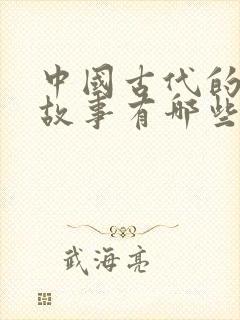 中國古代的
故事有哪些
武海亮